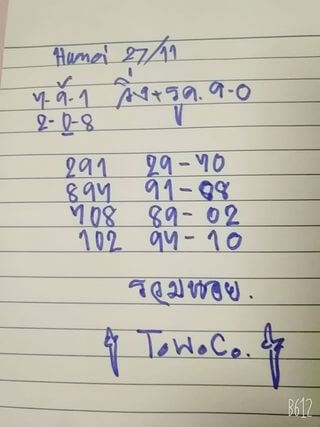 Hanoi 27/11
7-9-1 วิ่ง+รูด. 9-0
2-0-8
291 29-70
897 91-08
708 89-02
102 97-10
รวมหวย.
ToWoCo.
B612